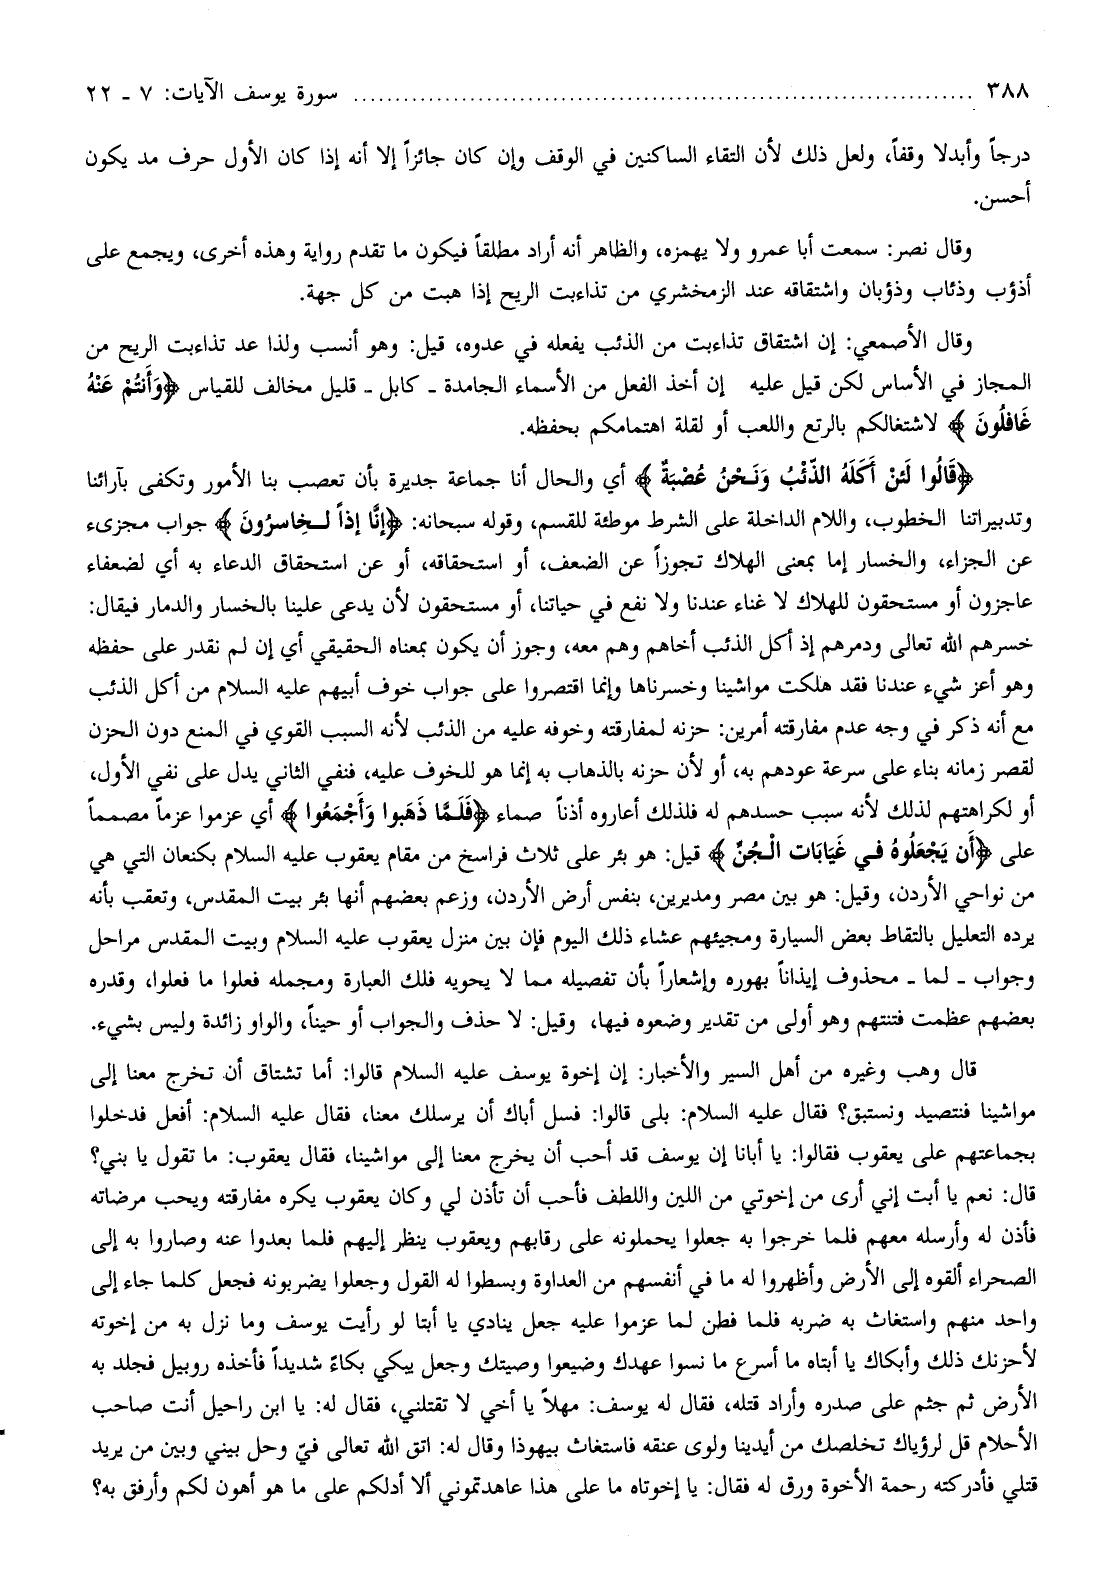 ٣٨٨ ........................................................................... سورة يوسف الآيات: ٧ ـ ٢٢
درجاً وأبدلا وقفاً، ولعل ذلك لأن التقاء الساكنين في الوقف وإن كان جائزاً إلا أنه إذا كان الأول حرف مد يكون
أحسن.
وقال نصر: سمعت أبا عمرو ولا يهمزه، والظاهر أنه أراد مطلقاً فيكون ما تقدم رواية وهذه أخرى، ويجمع على
أذؤب وذئاب وذؤبان واشتقاقه عند الزمخشري من تذاءبت الريح إذا هبت من كل جهة.
وقال الأصمعي: إن اشتقاق تذاءبت من الذئب يفعله في عدوه، قيل: وهو أنسب ولذا عد تذاءبت الريح من
المجاز في الأساس لكن قيل عليه إن أخذ الفعل من الأسماء الجامدة ـ كابل ـ قليل مخالف للقياس ﴿وَأَنتُمْ عَنْهُ
غَافلُونَ ﴾ لاشتغالكم بالرتع واللعب أو لقلة اهتمامكم بحفظه.
﴿قَالُوا لَئنْ أَكَلَهُ الذّئْبُ وَنَحْنُ عُصْبَةٌ ﴾ أي والحال أنا جماعة جديرة بأن تعصب بنا الأمور وتكفى بآرائنا
وتدبيراتنا الخطوب، واللام الداخلة على الشرط موطئة للقسم، وقوله سبحانه: ﴿إنَّا إذاً لَخاسرُونَ ﴾ جواب مجزىء
عن الجزاء، والخسار إما بمعنى الهلاك تجوزاً عن الضعف، أو استحقاقه، أو عن استحقاق الدعاء به أي لضعفاء
عاجزون أو مستحقون للهلاك لا غناء عندنا ولا نفع في حياتنا، أو مستحقون لأن يدعى علينا بالخسار والدمار فيقال:
خسرهم الله تعالى ودمرهم إذ أكل الذئب أخاهم وهم معه، وجوز أن يكون بمعناه الحقيقي أي إن لم نقدر على حفظه
وهو أعز شيء عندنا فقد هلكت مواشينا وخسرناها وإنما اقتصروا على جواب خوف أبيهم عليه السلام من أكل الذئب
مع أنه ذكر في وجه عدم مفارقته أمرين: حزنه لمفارقته وخوفه عليه من الذئب لأنه السبب القوي في المنع دون الحزن
لقصر زمانه بناء على سرعة عودهم به، أو لأن حزنه بالذهاب به إنما هو للخوف عليه، فنفي الثاني يدل على نفي الأول،
أو لكراهتهم لذلك لأنه سبب حسدهم له فلذلك أعاروه أذناً صماء ﴿فَلَمَّا ذَهَبوا وَأَجْمَعُوا ﴾ أي عزموا عزماً مصمماً
على ﴿أَن يَجْعَلُوهُ فـي غَيَابَات الْجُبِّ ﴾ قيل: هو بئر على ثلاث فراسخ من مقام يعقوب عليه السلام بكنعان التي هي
من نواحي الأردن، وقيل: هو بين مصر ومديرين، بنفس أرض الأردن، وزعم بعضهم أنها بئر بيت المقدس، وتعقب بأنه
يرده التعليل بالتقاط بعض السيارة ومجيئهم عشاء ذلك اليوم فإن بين منزل يعقوب عليه السلام وبيت المقدس مراحل
وجواب ـ لما ـ محذوف إيذاناً بهوره وإشعاراً بأن تفصيله مما لا يحويه فلك العبارة ومجمله فعلوا ما فعلوا، وقدره
بعضهم عظمت فتنتهم وهو أولى من تقدير وضعوه فيها، وقيل: لا حذف والجواب أو حيناً، والواو زائدة وليس بشيء.
قال وهب وغيره من أهل السير والأخبار: إن إخوة يوسف عليه السلام قالوا: أما تشتاق أن تخرج معنا إلى
مواشينا فنتصيد ونستبق؟ فقال عليه السلام: بلى قالوا: فسل أباك أن يرسلك معنا، فقال عليه السلام: أفعل فدخلوا
بجماعتهم على يعقوب فقالوا: يا أبانا إن يوسف قد أحب أن يخرج معنا إلى مواشينا، فقال يعقوب: ما تقول يا بني؟
قال: نعم يا أبت إني أرى من إخوتي من اللين واللطف فأحب أن تأذن لي وكان يعقوب يكره مفارقته ويحب مرضاته
فأذن له وأرسله معهم فلما خرجوا به جعلوا يحملونه على رقابهم ويعقوب ينظر إليهم فلما بعدوا عنه وصاروا به إلى
الصحراء ألقوه إلى الأرض وأظهروا له ما في أنفسهم من العداوة وبسطوا له القول وجعلوا يضربونه فجعل كلما جاء إلى
واحد منهم واستغاث به ضربه فلما فطن لما عزموا عليه جعل ينادي يا أبتا لو رأيت يوسف وما نزل به من إخوته
لأحزنك ذلك وأبكاك يا أبتاه ما أسرع ما نسوا عهدك وضيعوا وصيتك وجعل يبكي بكاءً شديداً فأخذه روبيل فجلد به
الأرض ثم جثم على صدره وأراد قتله، فقال له يوسف: مهلاً يا أخي لا تقتلني، فقال له: يا ابن راحيل أنت صاحب
الأحلام قل لرؤياك تخلصك من أيدينا ولوى عنقه فاستغاث بيهوذا وقال له: اتق الله تعالى فيّ وحل بيني وبين من يريد
قتلي فأدركته رحمة الأخوة ورق له فقال: يا إخوتاه ما على هذا عاهدتموني ألا أدلكم على ما هو أهون لكم وأرفق به؟